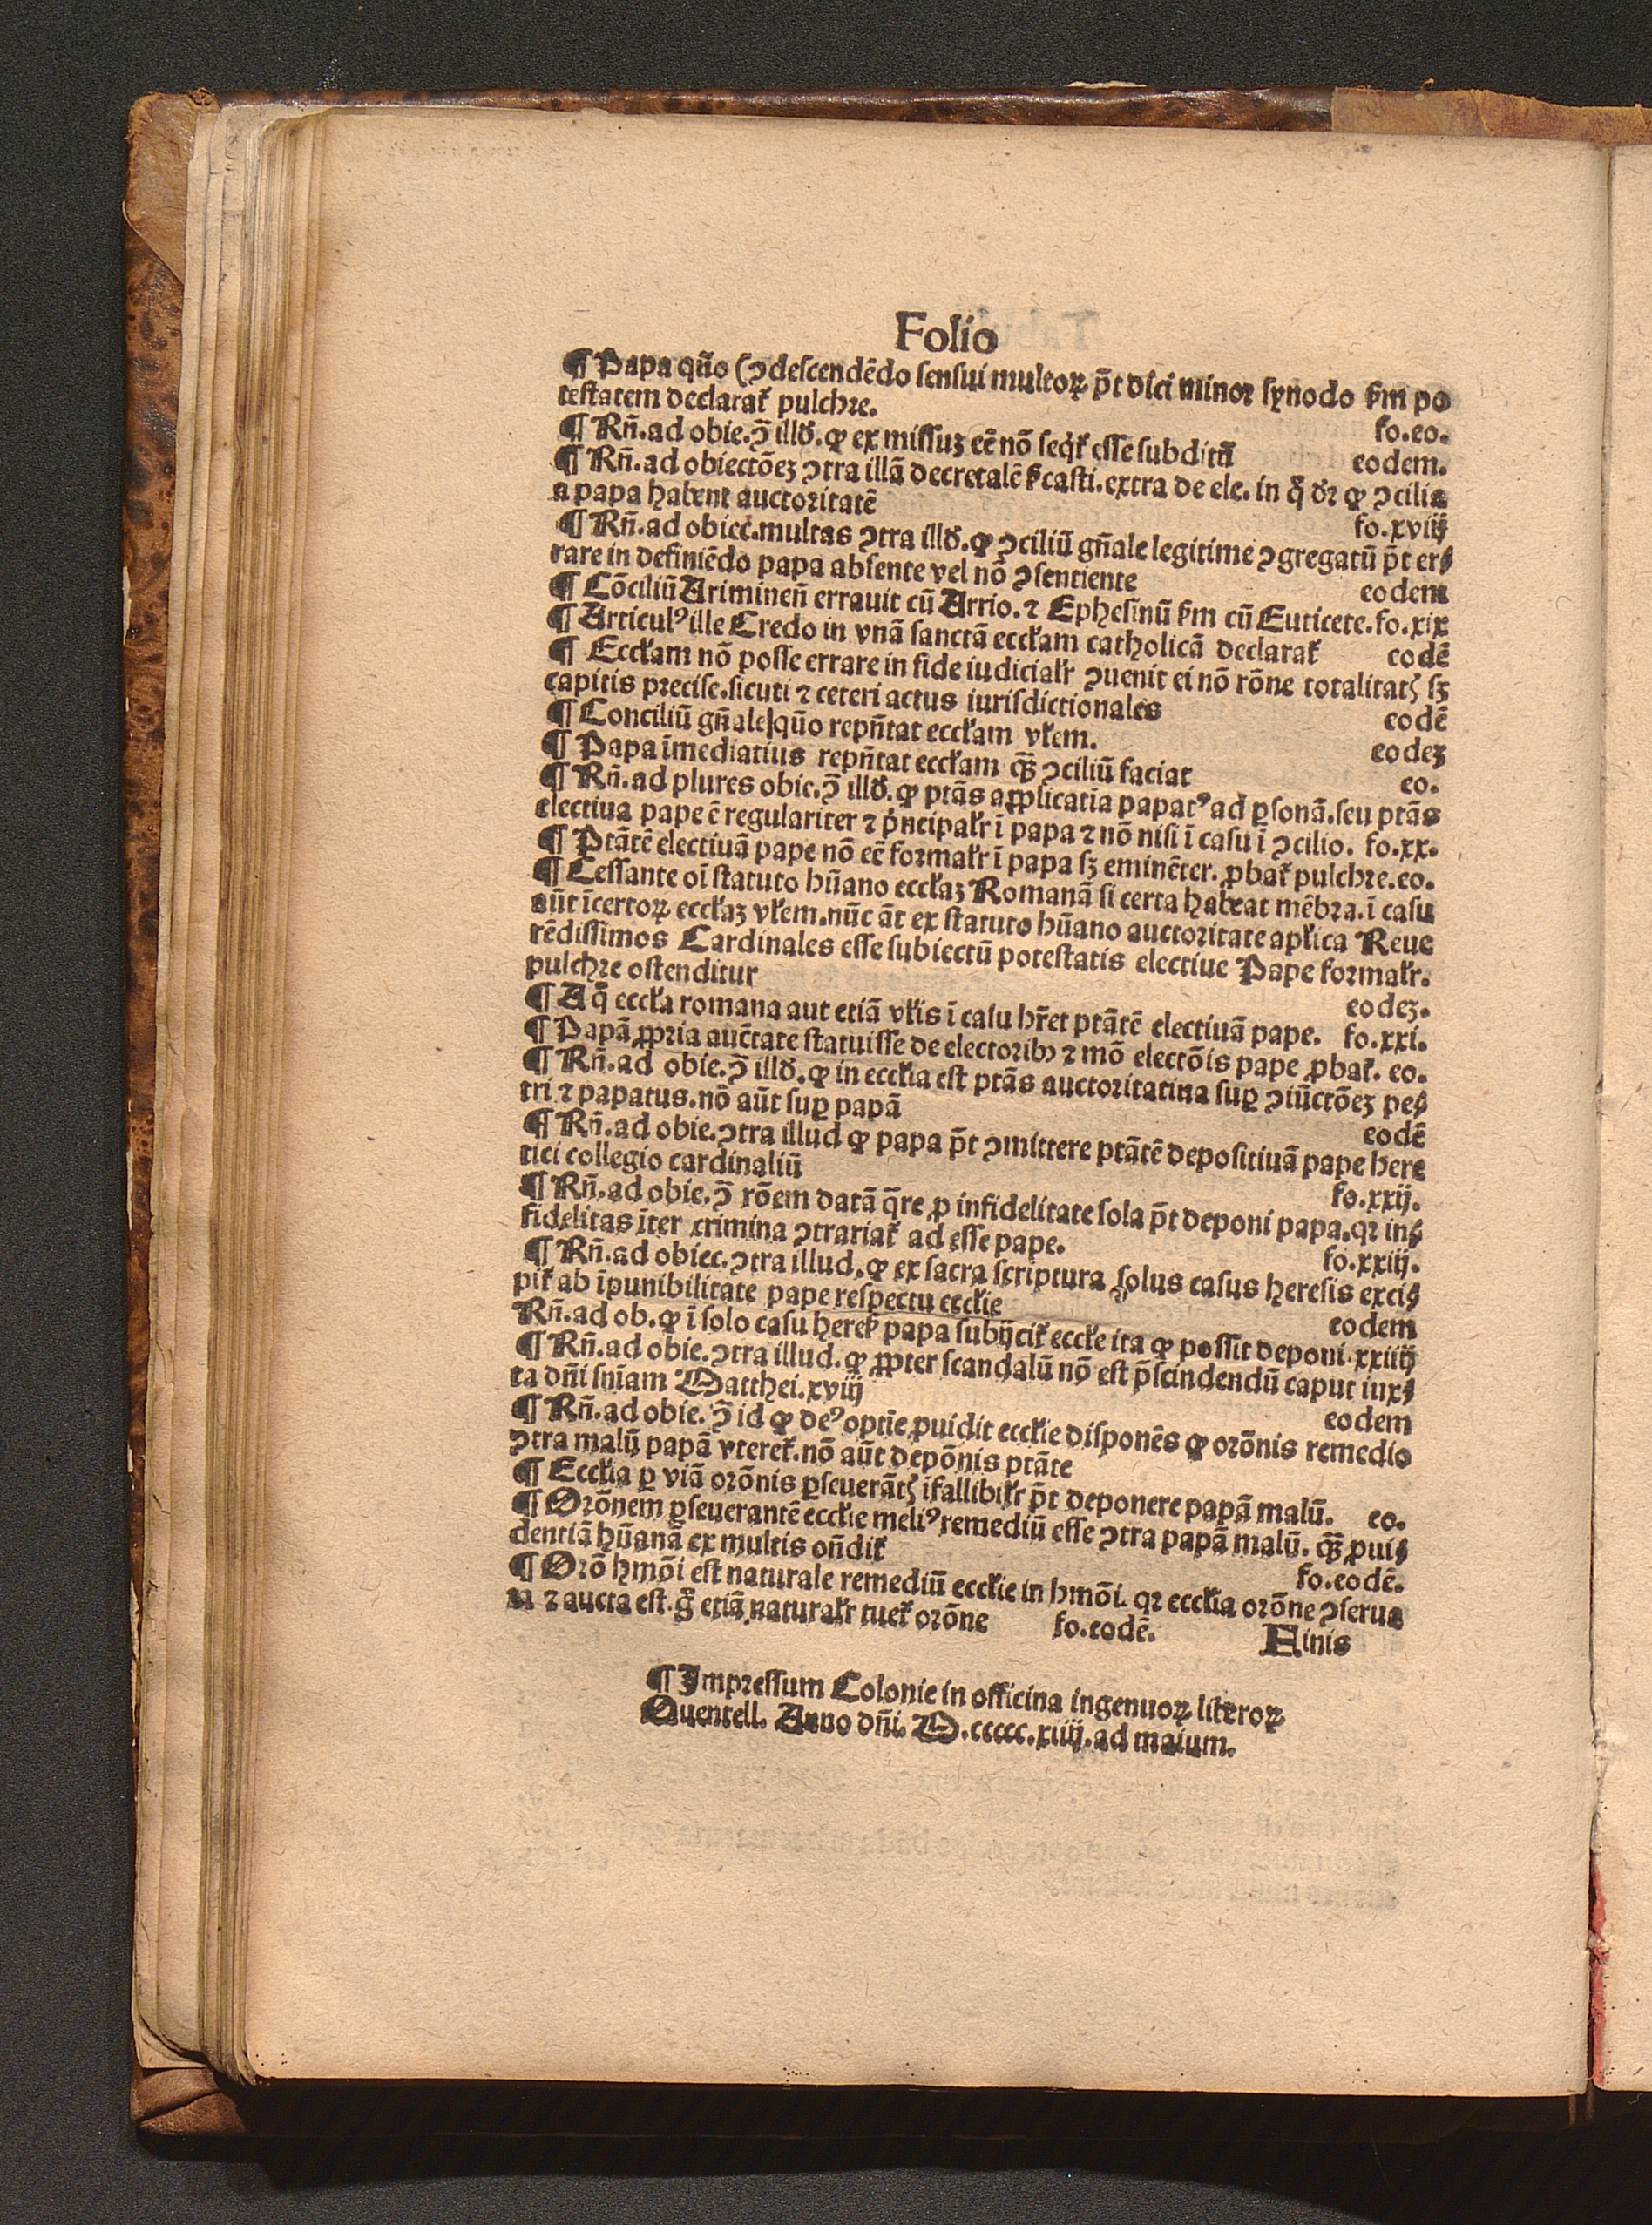 Folio
¶ Papa qũo (ↄdescendẽdo sensui multoꝝ p̃t dici minor synodo ẜm po
testatem declaratᷣ pulchre. fo.eo.
¶ Rñ.ad obie.ↄ̃ illð.ꝙ ex missuʒ eẽ nõ seqᷣtᷣ esse subditũ eodem.
¶ Rñ.ad obiectõeʒ ↄtra illã decretalẽ ẜcasti.extra de ele. in q̃ dr ꝙ ↄcilia
a papa habent auctoritatẽ fo.xviij
¶ Rñ.ad obiec̃.multas ↄtra illð.ꝙ ↄciliũ gñale legitime ↄgregatũ p̃t er⸗
rare in definiẽdo papa absente vel nõ ↄsentiente eodem
¶ Cõciliũ Arimineñ errauit cũ Arrio. ⁊ Ephesinũ ẜm cũ Euticete.fo.xix
¶ Articulꝰ ille Credo in vnã sanctã eccłam catholicã declaratᷣ eodẽ
¶ Eccłam nõ posse errare in fide iudiciałr ↄuenit ei nõ rõne totalitatꝭ sʒ
capitis precise.sicuti ⁊ ceteri actus iurisdictionales eodẽ
¶ Conciliũ gñale|qũo repñtat eccłam vłem. eodeʒ
¶ Papa ĩmediatius repñtat eccłam q̃ꝫ ↄciliũ faciat eo.
¶ Rñ.ad plures obie.ↄ̃ illð.ꝙ ptãs aꝓplicatĩa papatꝰ ad ꝑsonã.seu ptãs
electiua pape ẽ regulariter ⁊ pͥncipałr ĩ papa ⁊ nõ nisi ĩ casu ĩ ↄcilio. fo.xx.
¶ Ptãtẽ electiuã pape nõ eẽ formałr ĩ papa sʒ eminẽter. ꝓbatᷣ pulchre.eo.
¶ Cessante oĩ statuto hũano eccłaʒ Romanã si certa habeat mẽbra. ĩ casu
aũt ĩcertoꝝ eccłaʒ vłem.nũc ãt ex statuto hũano auctoritate apłica Reue
rẽdissimos Cardinales esse subiectũ potestatis electiue Pape formałr.
pulchre ostenditur eodeʒ.
¶ A q̃ eccła romana aut etiã vłis ĩ casu hr̃et ptãtẽ electiuã pape. fo.xxi.
¶ Papã ꝓpria auc̃tate statuisse de electoribꝰ ⁊ mõ electõis pape ꝓbatᷣ. eo.
¶ Rñ.ad obie.ↄ̃ illð.ꝙ in eccłia est ptãs auctoritatiua suꝑ ↄiũctõeʒ pe⸗
tri ⁊ papatus.nõ aũt suꝑ papã eodẽ
¶ Rñ.ad obie.ↄtra illud ꝙ papa p̃t ↄmittere ptãtẽ depositiuã pape here
tici collegio cardinaliũ fo.xxij.
¶ Rñ.ad obie.ↄ̃ rõem datã q̃re ꝓ infidelitate sola p̃t deponi papa.qꝛ in⸗
fidelitas ĩter crimina ↄtrariatᷣ ad esse pape. fo.xxiij.
¶ Rñ.ad obiec.ↄtra illud.ꝙ ex sacra scriptura solus casus heresis exci⸗
pitᷣ ab ĩpunibilitate pape respectu eccłie eodem
Rñ.ad ob.ꝙ ĩ solo casu heretᷣ papa subijcitᷣ eccłe ita ꝙ possit deponi.xxiiij
¶ Rñ.ad obie.ↄtra illud.ꝙ ꝓpter scandalũ nõ est p̃scindendũ caput iux⸗
ta dñi sniam Matthei.xviij eodem
¶ Rñ.ad obie.ↄ̃ id ꝙ deꝰ optĩe ꝓuidit eccłie disponẽs ꝙ orõnis remedio
ↄtra malũ papã vteretᷣ.nõ aũt depõnis ptãte
¶ Eccłia ꝑ viã orõnis ꝑseuerãtꝭ ifallibiłr p̃t deponere papã malũ. eo.
¶ Orõnem ꝑseuerantẽ eccłie meliꝰ remediũ esse ↄtra papã malũ. q̃ꝫ ꝓui⸗
dentiã hũanã ex multis oñditᷣ fo.eodẽ.
¶ Orõ hmõi est naturale remediũ eccłie in hmõi. qꝛ eccłia orõne ↄserua
ta ⁊ aucta est.g̃ etiã naturałr tuetᷣ orõne fo.eodẽ. Finis
¶ Impressum Colonie in officina ingenuoꝝ liberoꝝ
Quentell. Anno dñi. M.ccccc.xiiij.ad maium.